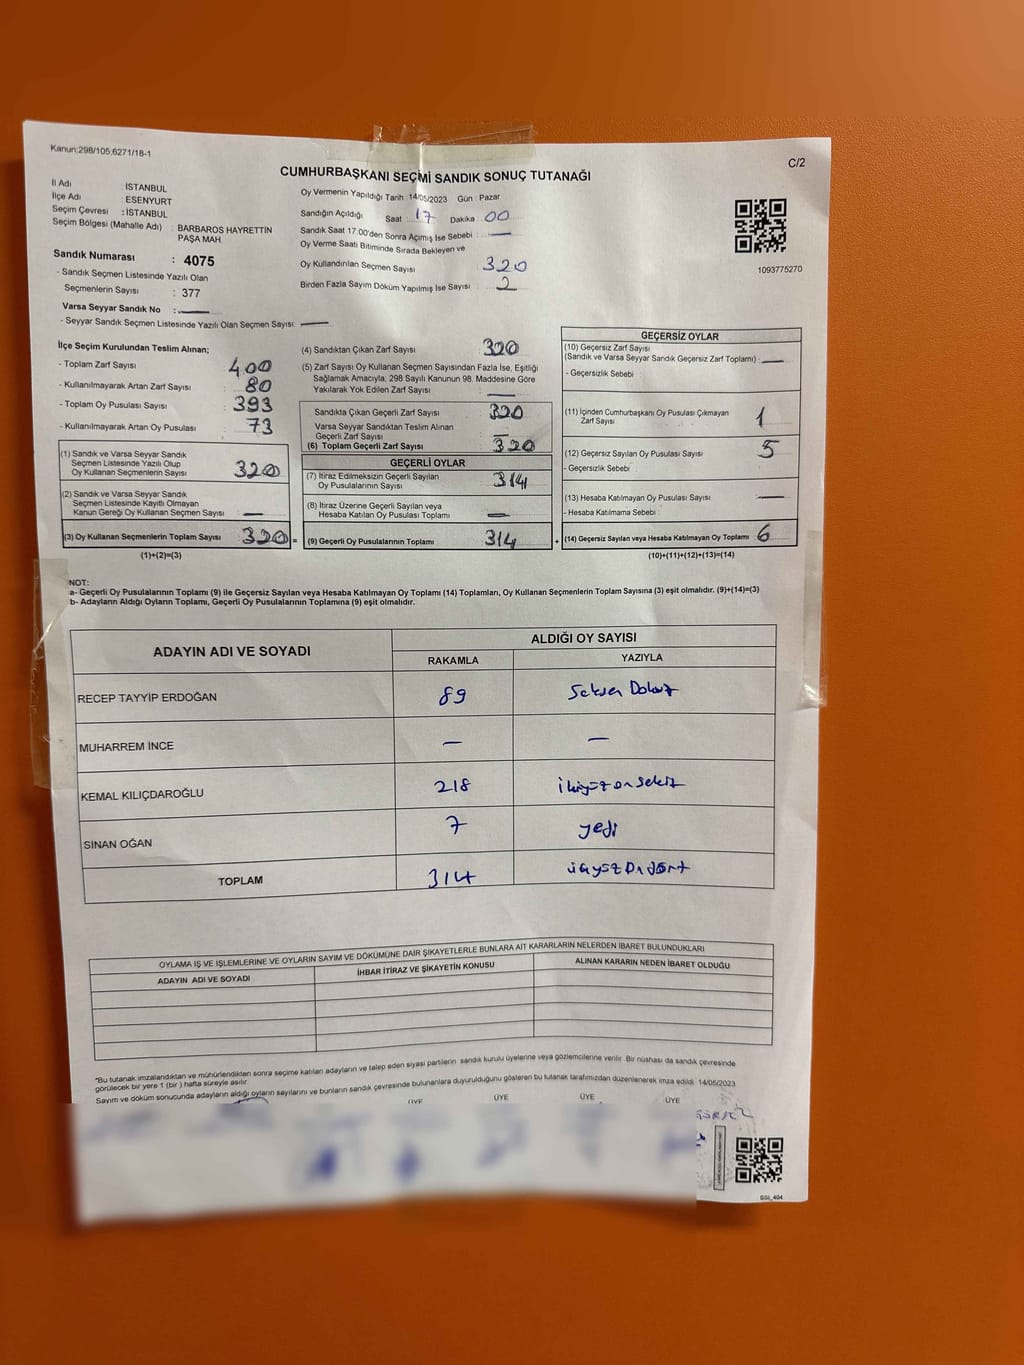 Kanun;298/105,6271/18-1
C/2
CUMHURBAŞKANI SEÇMİ SANDIK SONUÇ TUTANAĞI
İl Adı : İSTANBUL
İlçe Adı : ESENYURT
Seçim Çevresi : İSTANBUL
Seçim Bölgesi (Mahalle Adı) : BARBAROS HAYRETTİN PAŞA MAH.
Sandık Numarası : 4075
- Sandık Seçmen Listesinde Yazılı Olan
Seçmenlerin Sayısı : 377
Varsa Seyyar Sandık No : —
- Seyyar Sandık Seçmen Listesinde Yazılı Olan Seçmen Sayısı: —
Oy Vermenin Yapıldığı Tarih : 14/05/2023 Gün : Pazar
Sandığın Açıldığı Saat : 17 Dakika : 00
Sandık Saat 17.00'den Sonra Açımış İse Sebebi : —
Oy Verme Saati Bitiminde Sırada Bekleyen ve
Oy Kullandırılan Seçmen Sayısı : 320
Birden Fazla Sayım Döküm Yapılmış İse Sayısı : 2
1093775270
İlçe Seçim Kurulundan Teslim Alınan;
- Toplam Zarf Sayısı : 400
- Kullanılmayarak Artan Zarf Sayısı : 80
- Toplam Oy Pusulası Sayısı : 393
- Kullanılmayarak Artan Oy Pusulası : 73
(1) Sandık ve Varsa Seyyar Sandık
Seçmen Listesinde Yazılı Olup
Oy Kullanan Seçmenlerin Sayısı : 320
(2) Sandık ve Varsa Seyyar Sandık
Seçmen Listesinde Kayıtlı Olmayan
Kanun Gereği Oy Kullanan Seçmen Sayısı : —
(3) Oy Kullanan Seçmenlerin Toplam Sayısı : 320 =
(1)+(2)=(3)
(4) Sandıktan Çıkan Zarf Sayısı : 320
(5) Zarf Sayısı Oy Kullanan Seçmen Sayısından Fazla İse, Eşitliği
Sağlamak Amacıyla, 298 Sayılı Kanunun 98. Maddesine Göre
Yakılarak Yok Edilen Zarf Sayısı : —
Sandıkta Çıkan Geçerli Zarf Sayısı : 320
Varsa Seyyar Sandıktan Teslim Alınan
Geçerli Zarf Sayısı : —
(6) Toplam Geçerli Zarf Sayısı : 320
GEÇERLİ OYLAR
(7) İtiraz Edilmeksizin Geçerli Sayılan
Oy Pusulalarının Sayısı : 314
(8) İtiraz Üzerine Geçerli Sayılan veya
Hesaba Katılan Oy Pusulası Toplamı : —
(9) Geçerli Oy Pusulalarının Toplamı : 314 +
GEÇERSİZ OYLAR
(10) Geçersiz Zarf Sayısı
(Sandık ve Varsa Seyyar Sandık Geçersiz Zarf Toplamı) : —
- Geçersizlik Sebebi :
(11) İçinden Cumhurbaşkanı Oy Pusulası Çıkmayan
Zarf Sayısı : 1
(12) Geçersiz Sayılan Oy Pusulası Sayısı : 5
- Geçersizlik Sebebi :
(13) Hesaba Katılmayan Oy Pusulası Sayısı : —
- Hesaba Katılmama Sebebi :
(14) Geçersiz Sayılan veya Hesaba Katılmayan Oy Toplamı : 6
(10)+(11)+(12)+(13)=(14)
NOT:
a- Geçerli Oy Pusulalarının Toplamı (9) ile Geçersiz Sayılan veya Hesaba Katılmayan Oy Toplamı (14) Toplamları, Oy Kullanan Seçmenlerin Toplam Sayısına (3) eşit olmalıdır. (9)+(14)=(3)
b- Adayların Aldığı Oyların Toplamı, Geçerli Oy Pusulalarının Toplamına (9) eşit olmalıdır.
ADAYIN ADI VE SOYADI ALDIĞI OY SAYISI
RAKAMLA YAZIYLA
RECEP TAYYİP ERDOĞAN 89 Seksen Dokuz
MUHARREM İNCE — —
KEMAL KILIÇDAROĞLU 218 ikiyüz on sekiz
SİNAN OĞAN 7 yedi
TOPLAM 314 üçyüz on dört
OYLAMA İŞ VE İŞLEMLERİNE VE OYLARIN SAYIM VE DÖKÜMÜNE DAİR ŞİKAYETLERLE BUNLARA AİT KARARLARIN NELERDEN İBARET BULUNDUKLARI
ADAYIN ADI VE SOYADI İHBAR İTİRAZ VE ŞİKAYETİN KONUSU ALINAN KARARIN NEDEN İBARET OLDUĞU
*Bu tutanak imzalandıktan ve mühürlendikten sonra seçime katılan adayların ve talep eden siyasi partilerin sandık kurulu üyelerine veya gözlemcilerine verilir. Bir nüshası da sandık çevresinde
görülecek bir yere 1 (bir ) hafta süreyle asılır.
Sayım ve döküm sonucunda adayların aldığı oyların sayılarını ve bunların sandık çevresinde bulunanlara duyurulduğunu gösteren bu tutanak tarafımızdan düzenlenerek imza edildi. 14/05/2023
ÜYE ÜYE ÜYE ÜYE
GSI_404